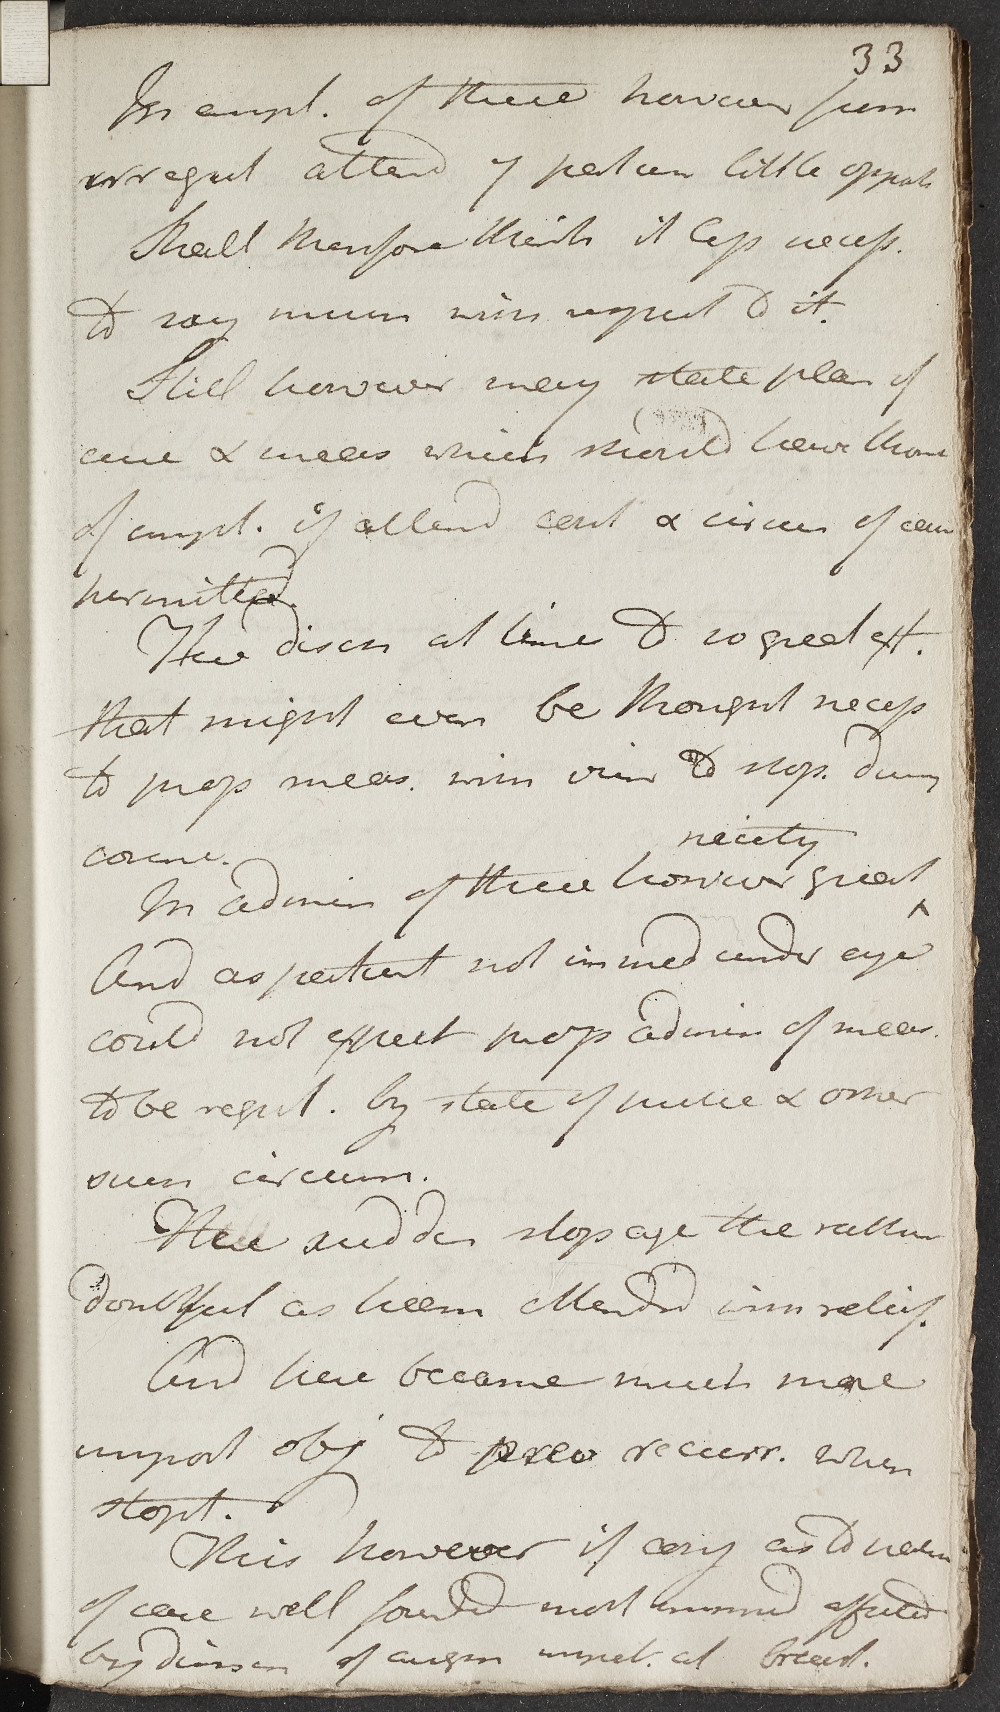 33
In empl. of these however from
irregul attend of patien little opport
Shall therefore think it less necess.
to say much with respect to it.
Still however may state plan of
cure & meas which should have thout
of empl. if attend and & circum of case
permitted.
The disch at time to so great ext.
that might even be thought necess
to prop meas. with view to stop. during
course.
nicety
In admin of these however great
And as patient not immed under eye
could not expect prop admin of meas.
to be regul. by state of pulse & other
such circum.
The sudden stopage the rather
doubtful as haem attended with relief.
And here became much more
import obj to prev recurr. when
stopt.
This however if conj as to nature
of case well founded most immed effected
by dimin of augm impet. at breast.